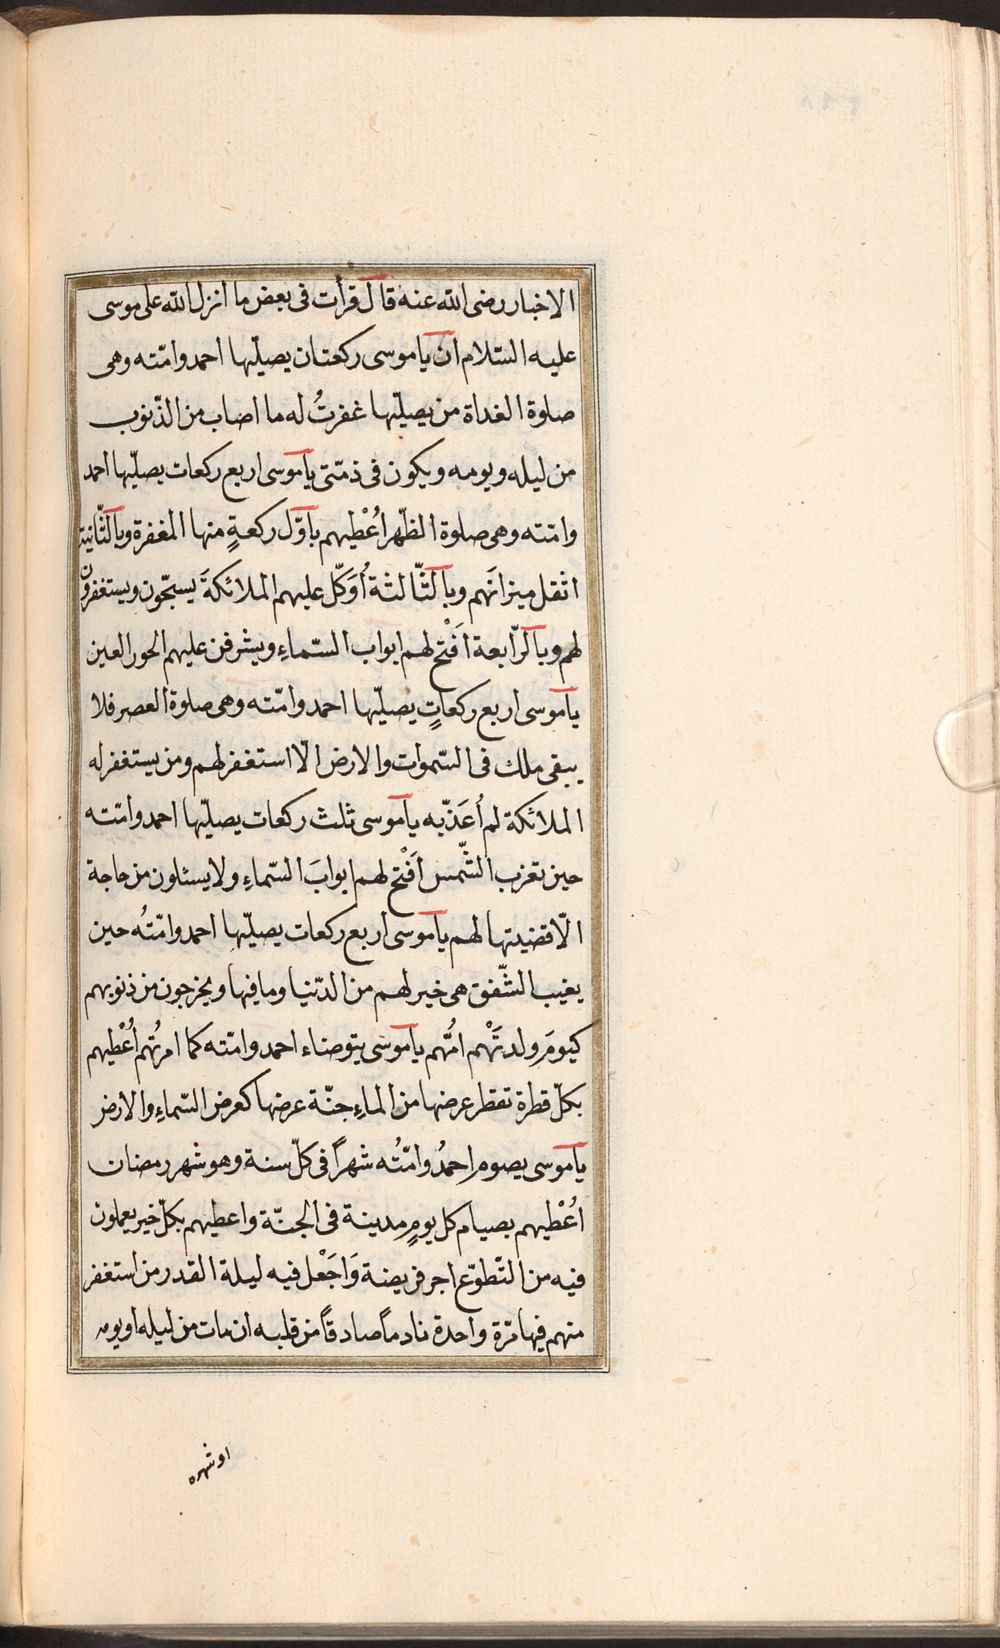 الاخبار رضى الله عنه قال قرأت فى بعض ما انزل الله على موسى
عليه السّلام ان يا موسى ركعتان يصلّيها احمد وامّته وهى
صلوة الغداة من يصلّيها غفرتُ له ما اصاب من الذّنوب
من ليله ويومه ويكون فى ذمّتى يا موسى اربع ركعات يصلّيها احمد
وامّته وهى صلوة الظّهر اُعْطيهم باوّل ركعةٍ منها المغفرة وبالثّانية
اثقل ميزانَهم وبالثّالثة اُوَكّل عليهم الملائكةَ يسبّحون ويستغفرون
لهم وبالرّابعة اَفْتح لهم ابواب السّماءِ ويشرفن عليهم الحور العين
يا موسى اربع ركعاتٍ يصلّيها احمد وامّته وهى صلوة العصر فلا
يبقى ملك فى السّموات والارض الّا استغفر لهم ومن يستغفر له
الملائكة لم اُعَذّبه يا موسى ثلث ركعات يصلّيها احمد وامّته
حين تغرب الشّمس اَفْتح لهم ابوابَ السّماءِ ولا يسئلون من حاجة
الّا قضيتها لهم يا موسى اربع ركعات يصلّيها احمد وامّتُه حين
يغيب الشّفق هى خير لهم من الدّنيا وما فيها ويخرجون من ذنوبهم
كيومَ ولدتْهم اُمّهم يا موسى يتوضاء احمد وامّته كما امرتُهم اُعْطيهم
بكلّ قطرة تقطر عرضها من الماءِ جنّة عرضها كعرض السّماءِ والارض
يا موسى يصوم احمدُ وامّتُه شهراً فى كلّ سنة وهو شهر رمضان
اُعْطيهم بصيام كل يومٍ مدينة فى الجنّة واعطيهم بكلّ خير يعملون
فيه من التّطوّع اجر فريضة وَاَجْعل فيه ليلة القدر من استغفر
منهم فيها مّرة واحدة نادماً صادقاً من قلبه ان مات من ليله او يومه
او شهره